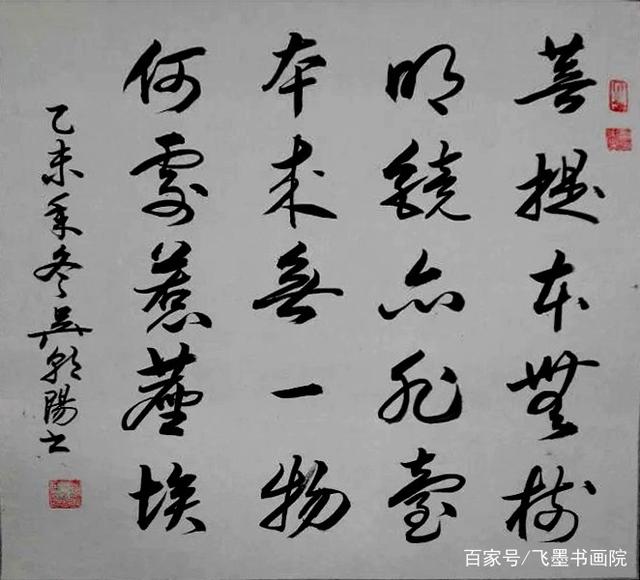 菩提本無樹
明鏡亦非臺
本來無一物
何處惹塵埃
乙未年冬吳朝陽書
百家号/飞墨书画院